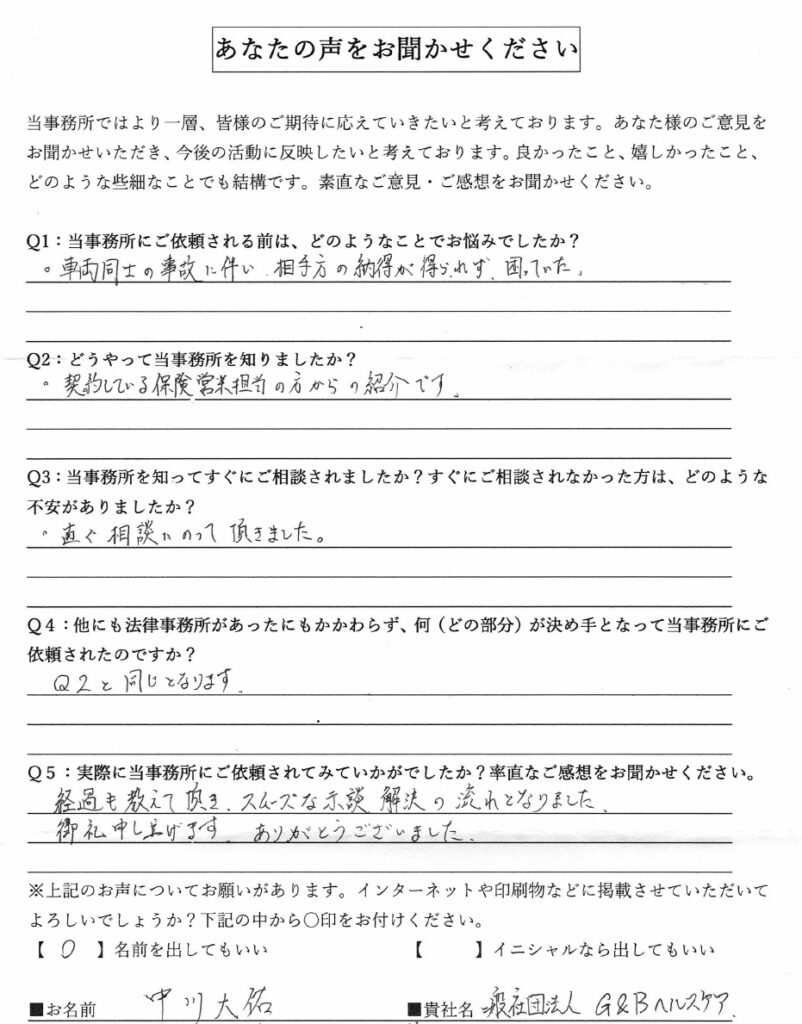 あなたの声をお聞かせください
当事務所ではより一層、皆様のご期待に応えていきたいと考えております。あなた様のご意見を
お聞かせいただき、今後の活動に反映したいと考えております。良かったこと、嬉しかったこと、
どのような些細なことでも結構です。素直なご意見・ご感想をお聞かせください。
Q1：当事務所にご依頼される前は、どのようなことでお悩みでしたか？
。車両同士の事故に伴い、相手方の納得が得られず、困っていた。
Q2：どうやって当事務所を知りましたか？
。契約している保険営業担当の方からの紹介です。
Q3：当事務所を知ってすぐにご相談されましたか？すぐにご相談されなかった方は、どのような
不安がありましたか？
。直ぐ相談にのって頂きました。
Q４：他にも法律事務所があったにもかかわらず、何（どの部分）が決め手となって当事務所にご
依頼されたのですか？
Q2と同じとなります。
Q５：実際に当事務所にご依頼されてみていかがでしたか？率直なご感想をお聞かせください。
経過も教えて頂き、スムーズな示談解決の流れとなりました。
御礼申し上げます。ありがとうございました。
※上記のお声についてお願いがあります。インターネットや印刷物などに掲載させていただいて
よろしいでしょうか？下記の中から〇印をお付けください。
【 〇 】名前を出してもいい 【 】イニシャルなら出してもいい
■お名前 中川大佑 ■貴社名 一般社団法人 G&Bヘルスケア